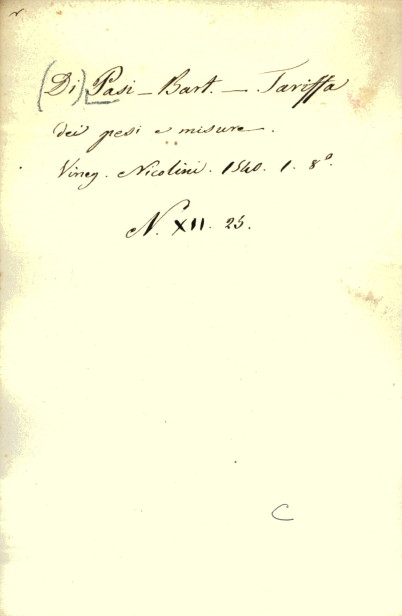 (Di) Pasi - Bart. - Tariffa
dei pesi e misure.
Vineg. Nicolini. 1540. 1. 8º.
N. XII. 25.
C